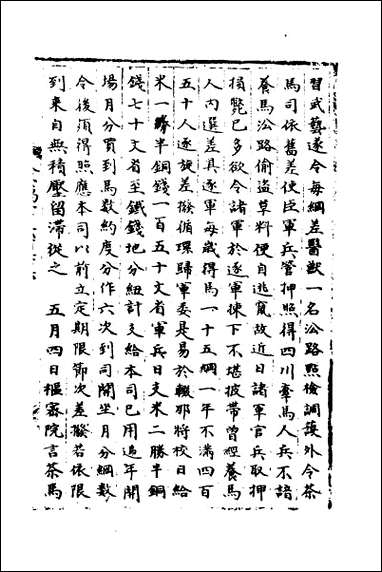 習武藝遂令每綱差醫獸一名沿路照檢調護外令茶
馬司依舊差使臣軍兵管押照得四川牽馬人兵不諳
養馬沿路偷盜草料便自逃竄故近日諸軍官兵取押
損斃已多欲令諸軍於逐軍揀下不堪披帶曾經養馬
人內選差具逐軍每歲得馬一十五綱一年不滿四百
五十人逐旋差撥循環歸軍委是易於輟那將校日給
米一勝半銅錢一百五十文省軍兵日支米二勝半銅
錢七十文省至鐵錢地分紐計支給本司已用追年開
場月分買到馬數約度分作六次到司開坐月分綱數
令後須得照應本司以前立定期限節次差撥若依限
到來自無積壓留滯從之　五月四日樞密院言茶馬